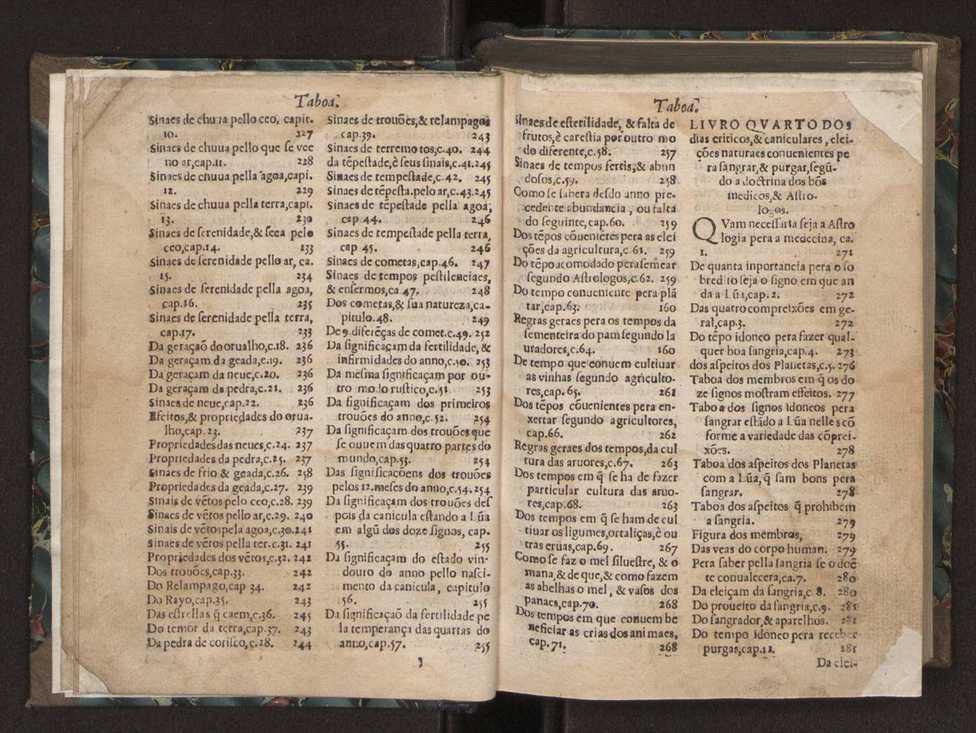 Taboa.
Sinaes de chuua pello ceo, capit.
10. 227
Sinaes de chuua pello que se vee
no ar,cap.11. 228
Sinaes de chuua pella agoa,capi.
12. 229
Sinaes de chuua pella terra,capi.
13. 230
Sinaes de serenidade,& seca pelo
ceo,cap.14. 133
Sinaes de serenidade pello ar, ca.
15. 234
Sinaes de serenidade pella agoa,
cap.16. 235
Sinaes de serenidade pella terra,
cap.17. 233
Da geraçaõ do orualho,c.18. 236
Da geraçam da geada,c.19. 236
Da geraçam da neue,c.20. 236
Da geraçam da pedra,c.21. 236
Sinaes de neue,cap.22. 236
Efeitos,& propriedades do orua-
lho,cap.23. 237
Propriedades das neues,c.24. 237
Propriedades da pedra,c.25. 237
Sinaes de frio & geada,c.26. 238
Propriedades da geada,c.27. 239
Sinais de vẽtos pelo ceo,c.28. 239
Sinaes de vẽtos pello ar,c.29. 240
Sinais de vẽtos pela agoa,c.30.241
Sinaes de vẽtos pella ter.c.31. 241
Propriedades dos vẽtos,c.32. 242
Dos trouões,cap.33. 242
Do Relampago,cap 34. 242
Do Rayo,cap.35. 243
Das estrellas q̃ caem,c.36. 245
Do temor da terra,cap.37. 243
Da pedra de corisco,c.28. 244
Sinaes de trouões,& relampagos
cap.39. 243
Sinaes de terremotos,c.40. 244
da tẽpestade,& seus sinais,c.41.245
Sinaes de tempestade,c.42. 245
Sinaes de tẽpesta.pelo ar,c.43.245
Sinaes de tẽpestade pella agoa,
cap 44. 246
Sinaes de tempestade pella terra,
cap 45. 246
Sinaes de cometas,cap.46. 247
Sinaes de tempos pestilenciaes,
& enfermos,ca.47. 248
Dos cometas,& sua natureza,ca-
pitulo.48. 249
De 9 diferẽças de comet.c.49. 252
Da significaçam da fertilidade,&
infirmidades do anno,c.50. 253
Da mesma significaçam por ou-
tro modo rustico,c.51. 253
Da significaçam dos primeiros
trouões do anno,c.52. 254
Da significaçam dos trouões que
se ouuem das quatro partes do
mundo,cap.53. 254
Das significaçoens dos trouões
pelos 12.meses do anno,c.54.254
Da significaçam dos trouões des
pois da canicula estando a Lũa
em algũ dos doze signos, cap.
55. 255
Da significaçam do estado vin-
douro do anno pello nasci-
mento da canicula, capitulo
56. 255
Da significaçaõ da fertilidade pe
la temperança das quartas do
anno,cap.57. 255
Taboa.
Sinaes de esterilidade, & falta de
frutos,& carestia por outro mo
do diferente,c.58. 257
Sinaes de tempos fertis,& abun
dosos,c.59. 258
Como se sabera desdo anno pre-
cedente abundancia, ou falta
do seguinte,cap.60. 259
Dos tẽpos cõuenientes pera as elei
ções da agricultura,c 61. 259
Do tẽpo acomodado pera semear
segundo Astrologos,c.62. 259
Do tempo conueniente pera plã
tar,cap.63. 160
Regras geraes pera os tempos da
sementeira do pam segundo la
uradores,c.64. 160
De tempo que conuem cultiuar
as vinhas segundo agriculto-
res,cap.65. 261
Dos tẽpos cõuenientes pera en-
xertar segundo agricultores,
cap.66. 262
Regras geraes dos tempos,da cul
tura das aruores,c.67. 263
Dos tempos em q̃ se ha de fazer
particular cultura das aruo-
res,cap.68. 263
Dos tempos em q̃ se ham de cul
tiuar os ligumes,ortaliças,& ou
tras eruas,cap.69. 267
Como se faz o mel siluestre, & o
mana,& de que,& como fazem
as abelhas o mel, & vasos dos
panaes,cap.70. 268
Dos tempos em que conuem be
neficiar as crias dos animaes,
cap.71. 268
LIVRO QVARTO DOS
dias criticos,& caniculares, elei-
ções naturaes conuenientes pe
ra sangrar,& purgar,segũ-
do a doctrina dos bõs
medicos,& Astro-
logos.
QVam necessaria seja a Astro
logia pera a medecina, ca.
1. 271
De quanta inportancia pera o so
bredito seja o signo em que an
da a Lũa,cap.2. 272
Das quatro compreixões em ge-
ral,cap.3. 272
Do tẽpo idoneo pera fazer qual-
quer boa sangria,cap.4. 273
dos aspeitos dos Planetas,c.5. 276
Taboa dos membros em q̃ os do
ze signos mostram effeitos. 277
Taboa dos signos idoneos pera
sangrar estãdo a Lũa nelles cõ
forme a variedade das cõprei-
xões. 278
Taboa dos aspeitos dos Planetas
com a Lũa,q̃ sam bons pera
sangrar. 278
Taboa dos aspeitos q̃ prohibem
a sangria. 279
Figura dos membros, 279
Das veas do corpo human. 279
Pera saber pella sangria se o doẽ
te conualecera,ca.7. 280
Da eleiçam da sangria,c 8. 280
Do proueito da sangria,c.9. 281
Do sangrador,& aparelhos. 281
Do tempo idoneo pera receber
purgas,cap.12. 281
Da elei-